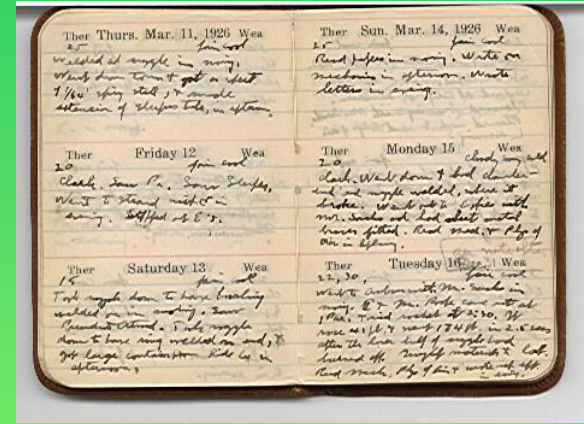 Ther Thurs. Mar. 11, 1926 Wea
25 fair cool
Welded at nozzle in morn.
Went down town & got a sheet
1/64" spring steel, & made
extension of Sleeper's tube, in afternoon
Ther Friday 12 Wea
20 fair cool
Clark. Saw Pa. Saw Sleeper,
Went to Strand with in
evening. Stopped at E's.
Ther Saturday 13 Wea
15 fair cool
Took nozzle down to have
welded on in morning. Saw
President Atwood. Took nozzle
down to have ring welded on end, &
got large container. Ride in
afternoon.
Ther Sun. Mar. 14, 1926 Wea
25 fair cool
Read papers in morning. Wrote on
in afternoon. Wrote
letters in evening.
Ther Monday 15 Wea
20 cloudy, cold
Clark. Went down & had chamber
end and nozzle welded, where it
broke. Went out to place with
Mr. Sachs and had sheet metal
braces fitted. Read Mech. & Phys of
Air in evening.
Ther Tuesday 16 Wea
22, 30, fair cool
Went to Auburn with Mr. Sachs in
morn. E & Mr. Roope came out at
1 P.M. Tried rocket at 2:30. It
rose 41 ft, & went 184 ft, in 2.5 secs
after the lower half of nozzle had
burned off. Brought materials to lab.
Read Mech., Phys of Air & wrote up expt.
in evening.